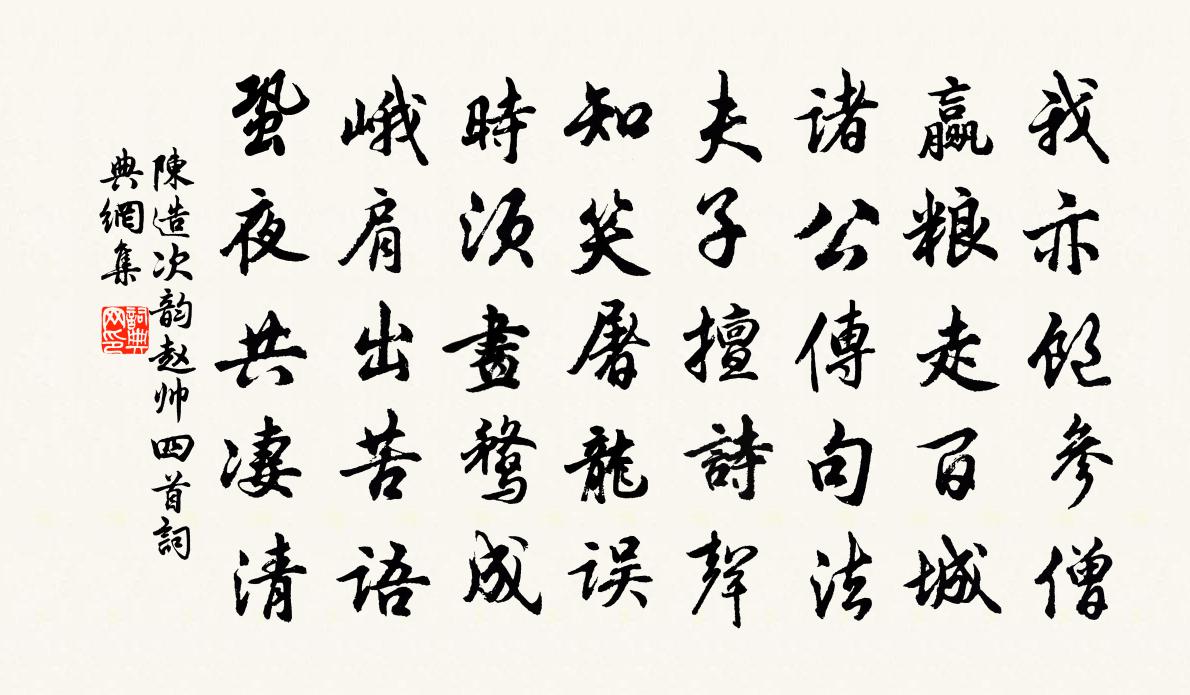 我亦飽參僧
贏粮走百城
諸公傳句法
夫子擅詩聲
知笑屠龍误
時须畫鶩成
峨肩出苦語
蛩夜共凄清
陳造次韵赵帅四首詞
典網集
詞典
网印